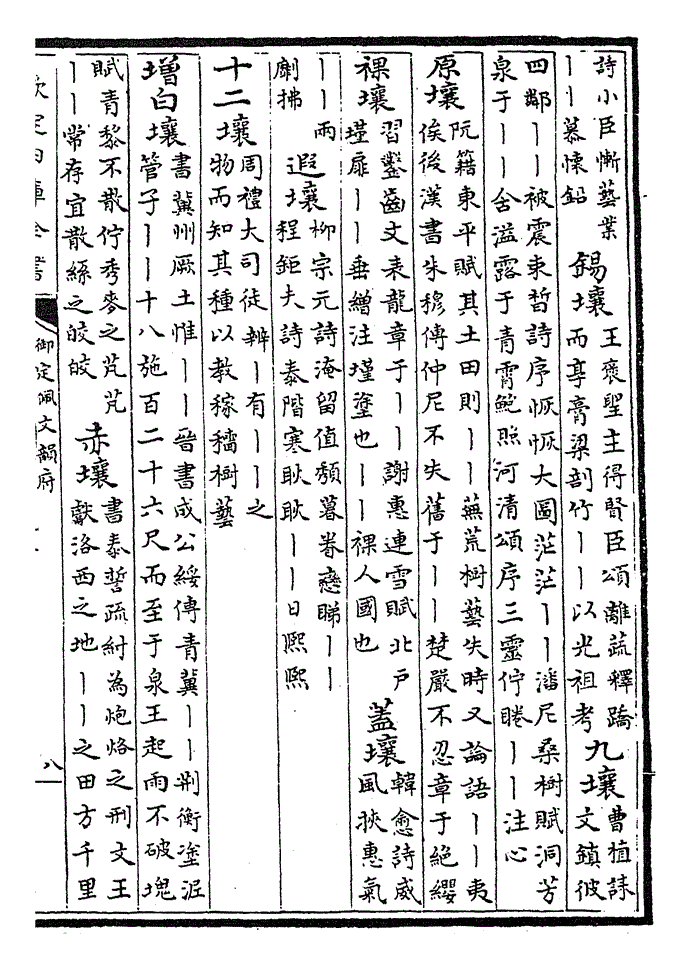 詩小臣慚藝業
丨丨慕懷鉛
錫壤
王褒聖主得賢臣頌離蔬釋蹻
而享膏粱剖竹丨丨以光祖考
九壤
曹植誄
文鎮彼
四鄰丨丨被震束晳詩序恢恢大圓茫茫丨丨潘尼桑樹賦洞芳
泉于丨丨含溢露于青霄鮑照河清頌序三靈佇睠丨丨注心
原壤
阮籍東平賦其土田則丨丨蕪荒樹藝失時又論語丨丨夷
俟後漢書朱穆傳仲尼不失舊于丨丨楚嚴不忍章于絶纓
裸壤
習鑿齒文表龍章于丨丨謝惠連雪賦北戸
墐扉丨丨垂繒注墐塗也丨丨裸人國也
蓋壤
韓愈詩威
風挾惠氣
丨丨兩
劘拂
遐壤
柳宗元詩淹留值頽暮眷戀睇丨丨
程鉅夫詩泰階寒耿耿丨丨日熈熈
十二壤
周禮大司徒辨丨有丨丨之
物而知其種以教稼穡樹藝
增白壤
書冀州厥土惟丨丨晉書成公綏傳青冀丨丨荆衡塗泥
管子丨丨十八施百二十六尺而至于泉王起雨不破塊
賦青黎不散佇秀麥之芃芃
丨丨常存宜散絲之皎皎
赤壤
書泰誓疏紂為炮烙之刑文王
獻洛西之地丨丨之田方千里
欽定四庫全書
御定佩文韻府
八